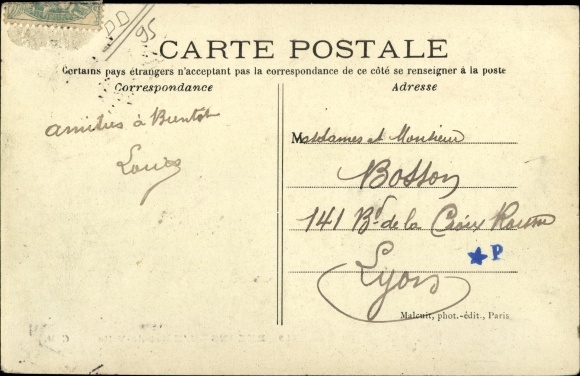 DD/95
CARTE POSTALE
Certains pays étrangers n'acceptant pas la correspondance de ce côté se renseigner à la poste
Correspondance
Adresse
amitiés à Bientôt
Louis
Mesdames et Monsieur
Bosson
141 Bd de la Croix Rousse
Lyon
★ P
Malcuit, phot.-édit., Paris